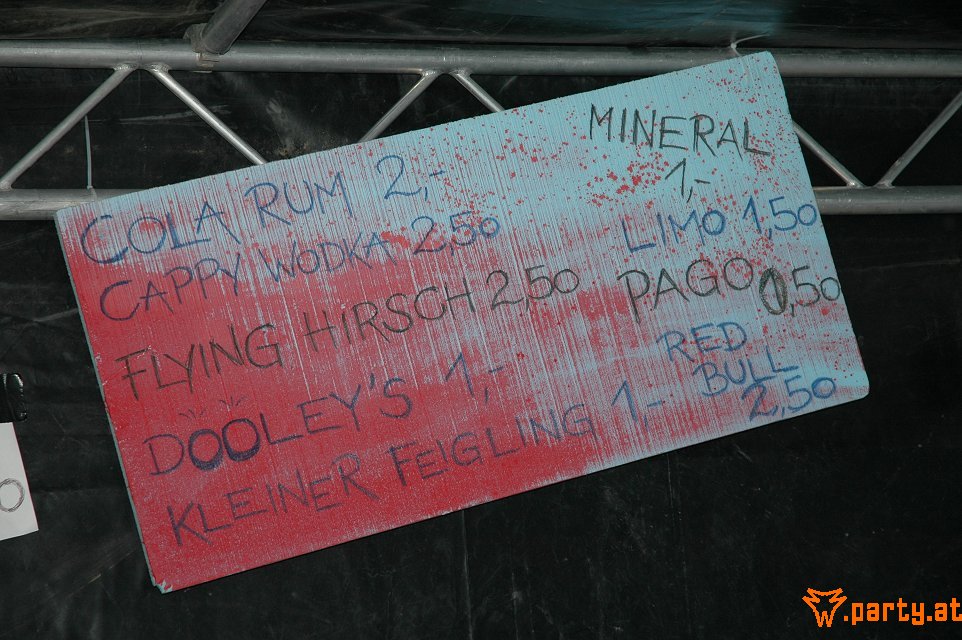 COLA RUM 2,-
CAPPY WODKA 2,50
FLYING HIRSCH 2,50
DOOLEY'S 1,-
KLEINER FEIGLING 1,-
MINERAL
1,-
LIMO 1,50
PAGO 0,50
RED
BULL
2,50
.party.at